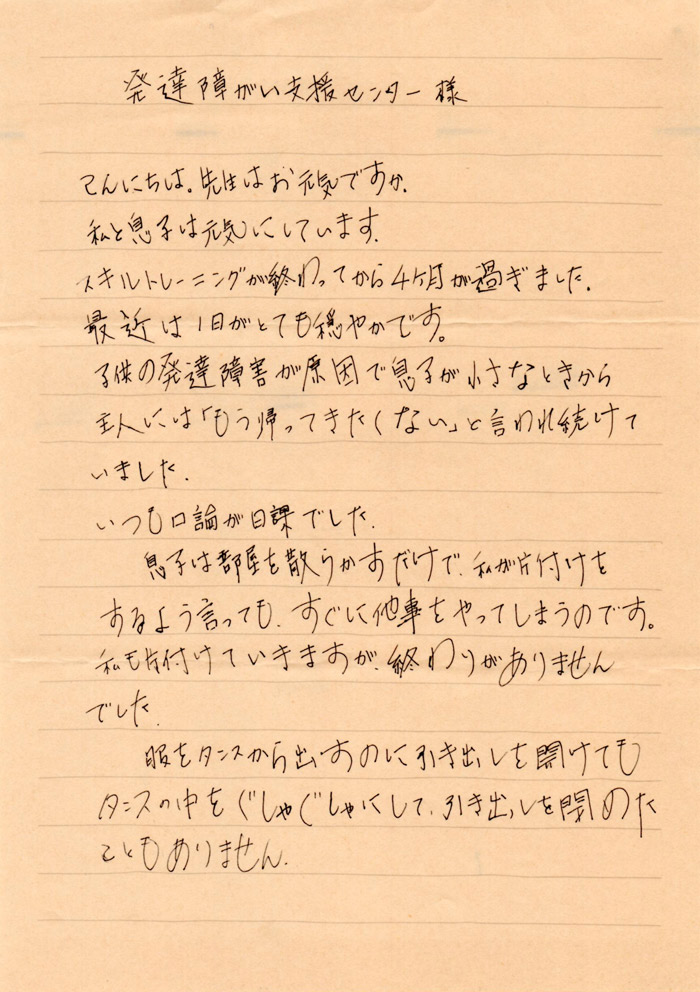 発達障がい支援センター 様
こんにちは。先生はお元気ですか。
私と息子は元気にしています。
スキルトレーニングが終わってから4ヶ月が過ぎました。
最近は1日がとても穏やかです。
子供の発達障害が原因で息子が小さなときから
主人には「もう帰ってきたくない」と言われ続けて
いました。
いつも口論が日課でした。
息子は部屋を散らかすだけで、私が片付けを
するよう言っても、すぐに他事をやってしまうのです。
私も片付けていきますが、終わりがありません
でした。
服をタンスから出すのに引き出しを開けても
タンスの中をぐしゃぐしゃにして、引き出しを閉めた
こともありません。